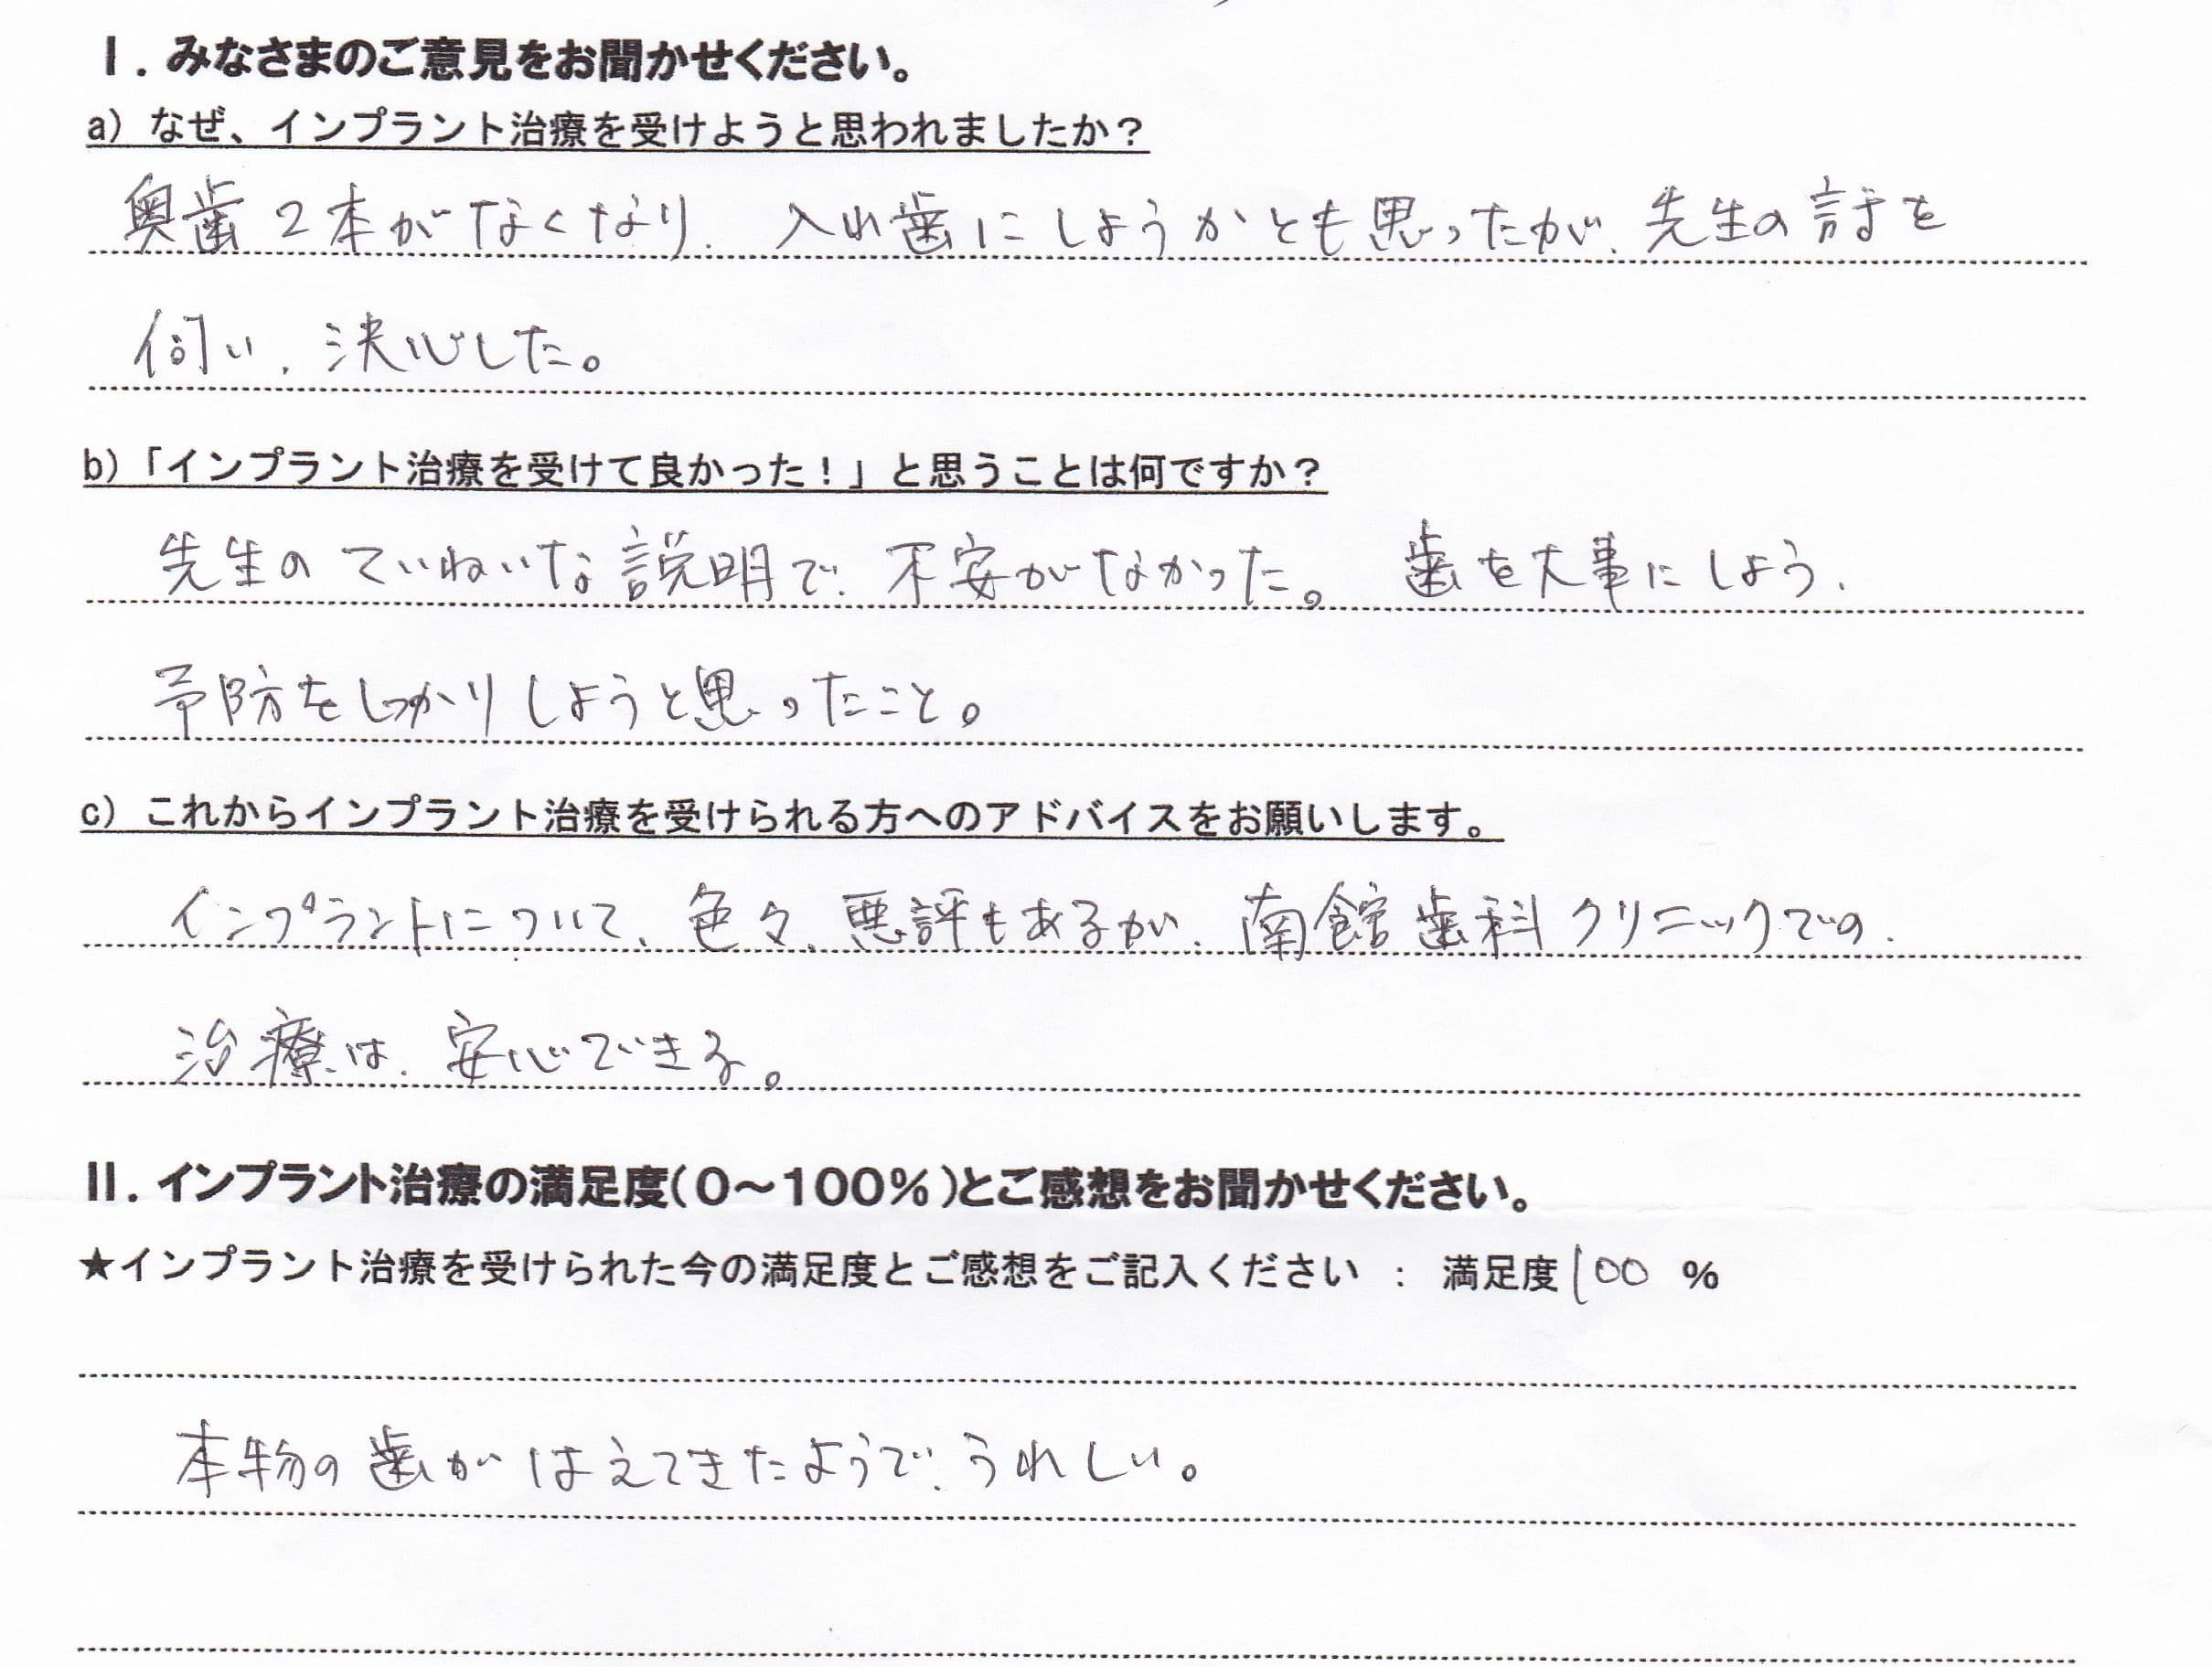 I. みなさまのご意見をお聞かせください。
a) なぜ、インプラント治療を受けようと思われましたか？
奥歯2本がなくなり、入れ歯にしようかとも思ったが、先生の話を
伺い、決心した。
b)「インプラント治療を受けて良かった！」と思うことは何ですか？
先生のていねいな説明で、不安がなかった。 歯を大事にしよう、
予防をしっかりしようと思ったこと。
c) これからインプラント治療を受けられる方へのアドバイスをお願いします。
インプラントについて、色々、悪評もあるが、南館歯科クリニックでの、
治療は、安心できる。
II. インプラント治療の満足度(0～100%)とご感想をお聞かせください。
★インプラント治療を受けられた今の満足度とご感想をご記入ください ： 満足度100 %
本物の歯がはえてきたようで、うれしい。